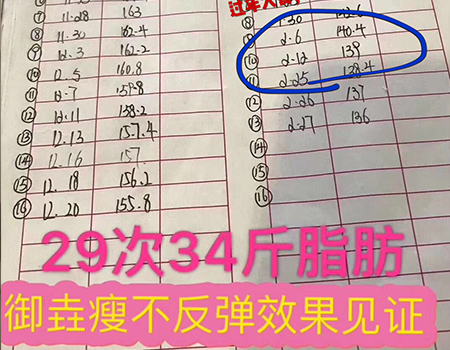 11.28 163
⑨ 11.30 162.4
12.3 162.2
12.5 160.8
12.7 159.8
12.11 158.2
⑬ 12.13 157.4
⑭ 12.16 157
⑮ 12.18 156.2
⑯ 12.20 155.8
⑧ 1.30
⑨ 2.6 140.4
⑩ 2.12 139
⑪ 2.25 138.4
⑫ 2.26 137
⑬ 2.27 136
⑭
⑮
⑯
29次34斤脂肪
御垚瘦不反弹效果见证